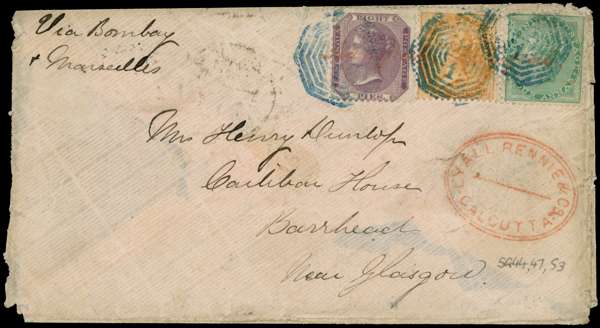 Via Bombay
+ Marseilles
EIGHT
PIES
Mrs Henry Dunlop
Carlibar House
Barrhead
Near Glasgow.
LYALL RENNIE & CO.
CALCUTTA
SG44, 47, 53